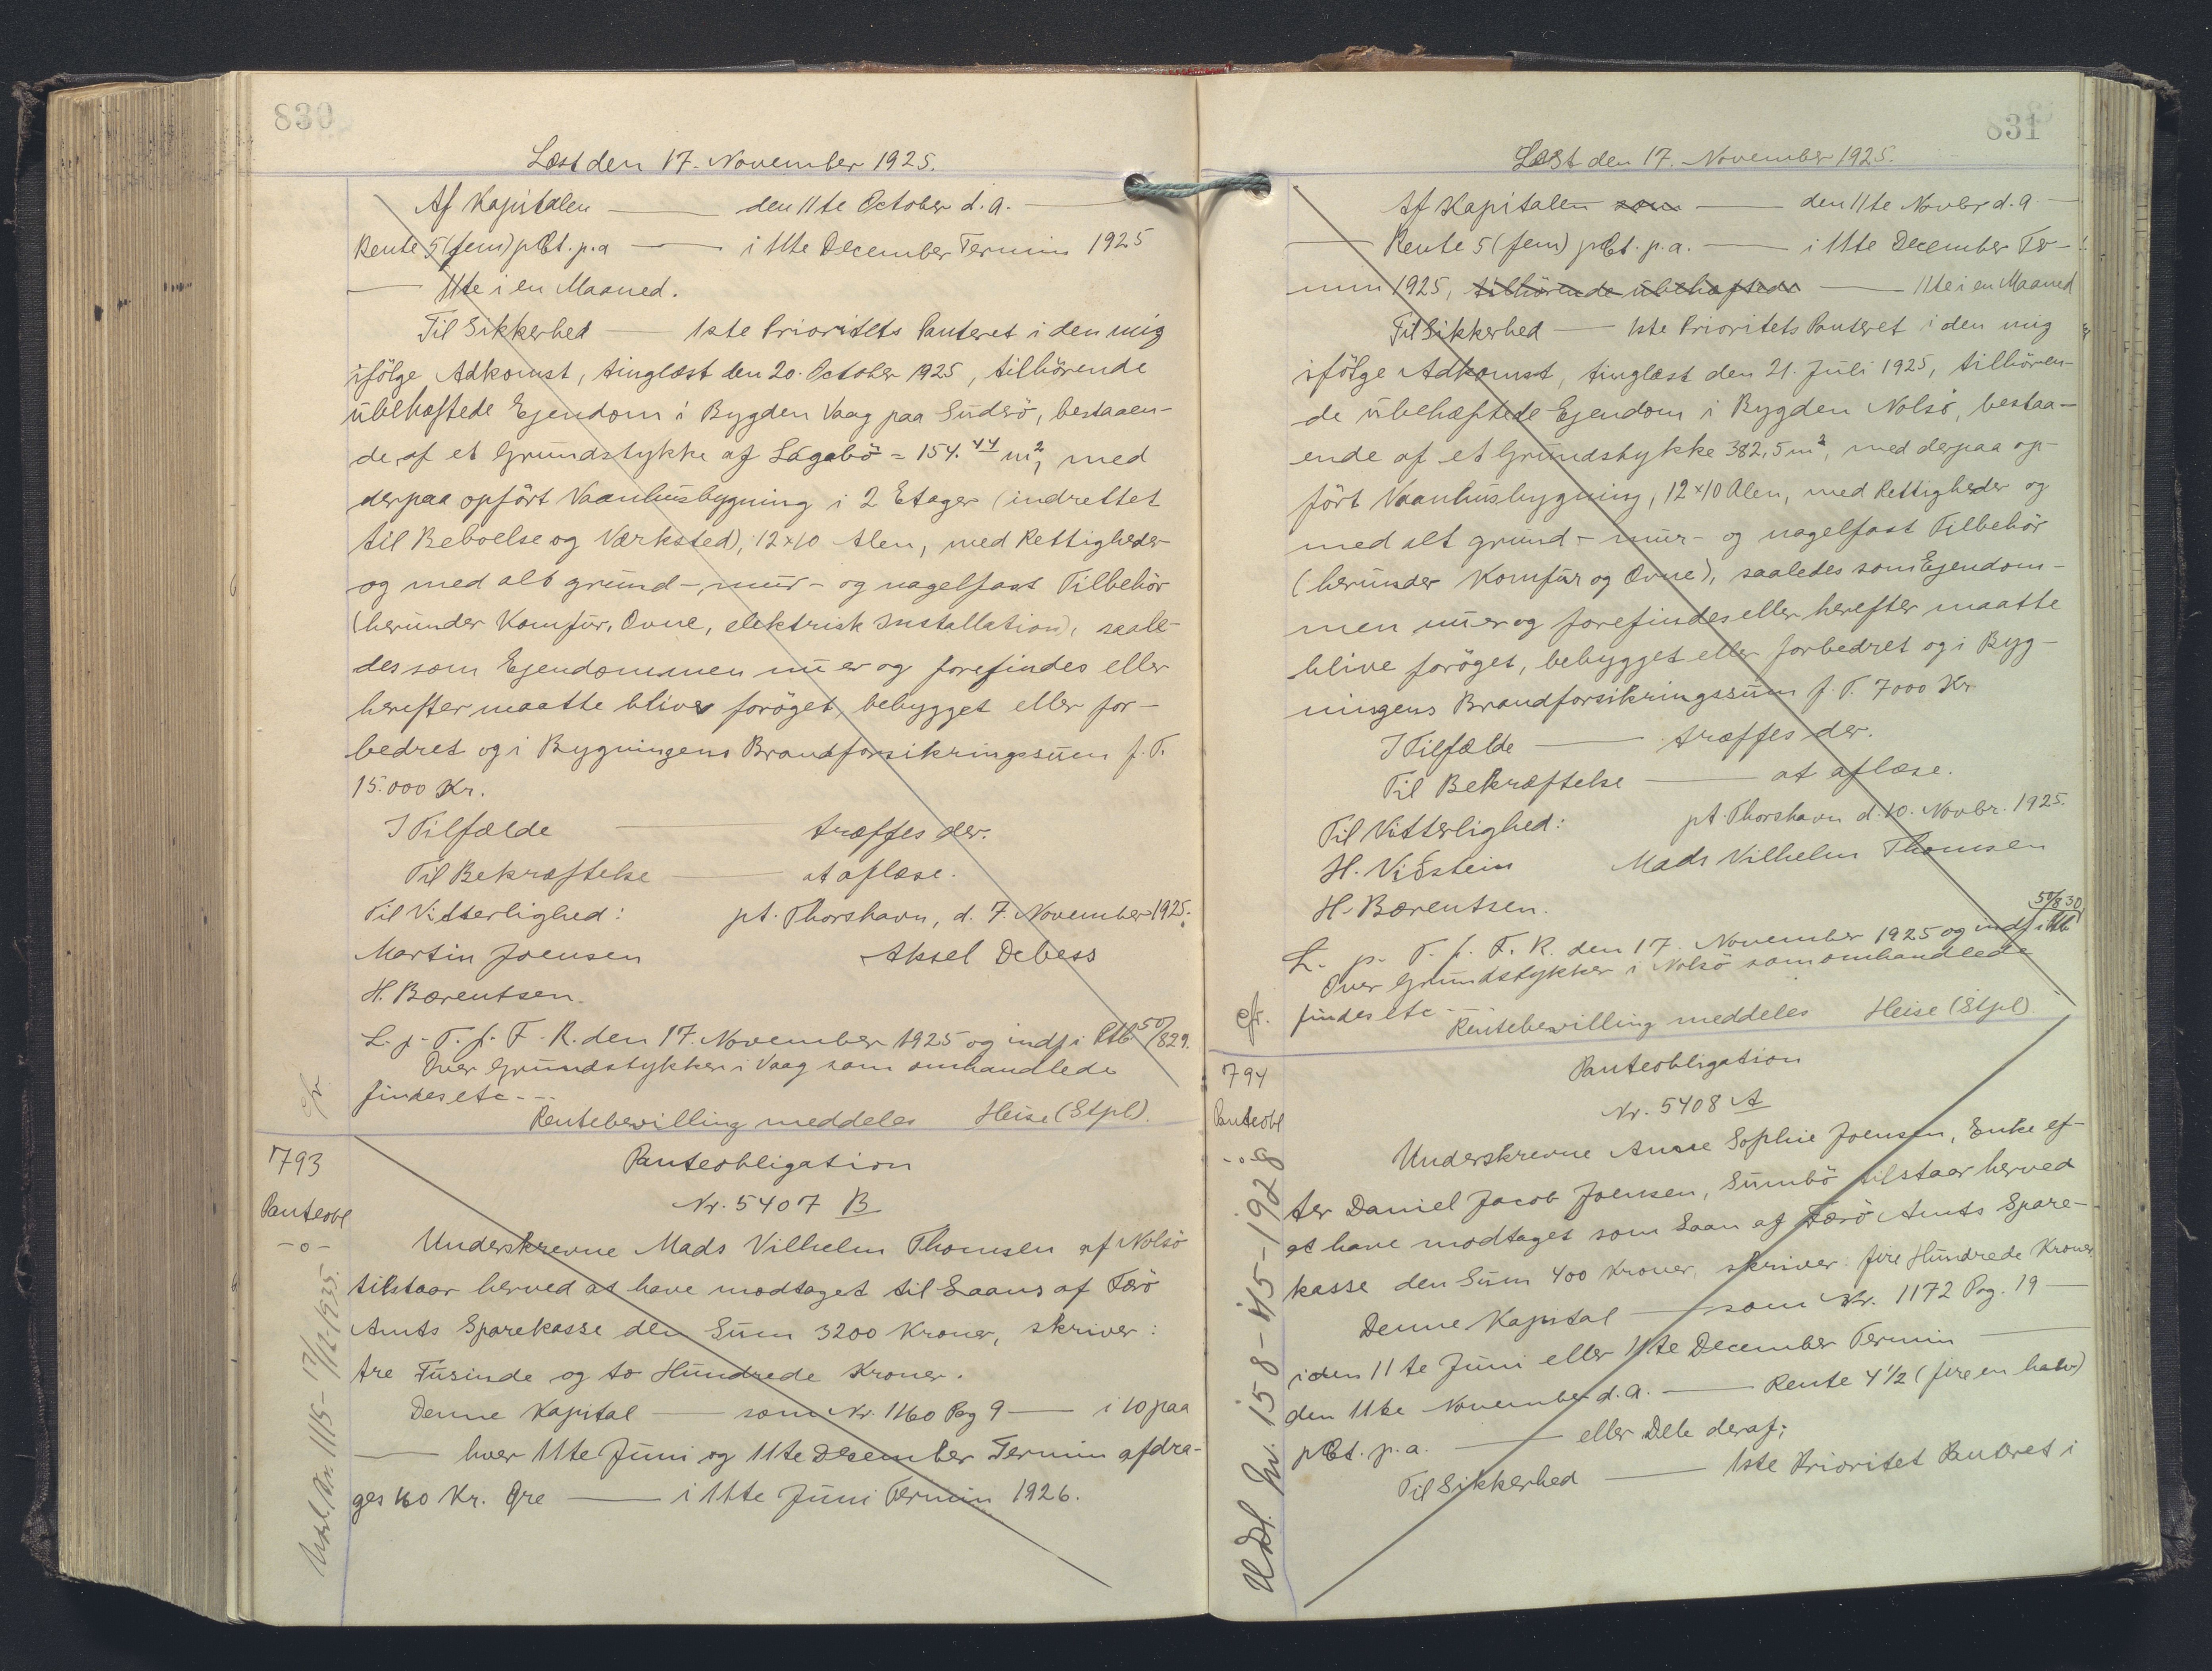 830
Læst den 17. November 1925.
Af Kapitalen — den 11te October d. A. —
Rente 5 (fem) pCt. p.a — i 11te December Termin 1925
— 11te i en Maaned.
Til Sikkerhed — 1ste Prioritets Panteret i den mig
ifölge Adkomst, tinglæst den 20. October 1925, tilhörende
ubehæftede Ejendom i Bygden Vaag paa Suderö, bestaaen-
de af et Grundstykke af Lágabö = 154.44 m2, med
derpaa opfört Vaanhusbygning i 2 Etager (indrettet
til Beboelse og Værksted), 12×10 Alen, med Rettigheder
og med alt grund-, mur- og nagelfast Tilbehör
(herunder Komfur, Ovne, elektrisk Installation), saale-
des som Ejendommen nu er og forefindes eller
herefter maatte blive foröget, bebygget eller for-
bedret og i Bygningens Brandforsikringssum f. T.
15.000 Kr.
I Tilfælde — træffes der.
Til Bekræftelse — at aflæse.
Til Vitterlighed: pt. Thorshavn, d. 7. November 1925.
Martin Joensen Aksel Debess
H. Bærentsen.
L. p. T. f. F. R. den 17. November 1925 og indf i Ptb. 50/829.
Over Grundstykker i Vaag som omhandlede
cfr findes etc - - -
Rentebevilling meddeles Heise (Stpl).
793
Panteobl
-o-
Panteobligation
Nr. 5407 B
Underskrevne Mads Vilhelm Thomsen af Nolsö
tilstaar herved at have modtaget til Laans af Færö
Amts Sparekasse den Sum 3200 Kroner, skriver:
tre Tusinde og to Hundrede Kroner.
Denne Kapital — som Nr. 1160 Pag 9 — i 10 paa
— hver 11te Juni og 11te December Termin afdra-
ges 160 Kr. Øre — i 11te Juni Termin 1926.
831
Læst den 17. November 1925.
Af Kapitalen som — den 11te Novbr d. A —
— Rente 5 (fem) pCt. p.a. — i 11te December Ter-
min 1925, tilhörende ubehæftede — 11te i en Maaned
Til Sikkerhed — 1ste Prioritets Panteret i den mig
ifölge Adkomst, tinglæst den 21. Juli 1925, tilhören-
de ubehæftede Ejendom i Bygden Nolsö, bestaa-
ende af et Grundstykke 382,5 m2, med derpaa op-
fört Vaanhusbygning, 12×10 Alen, med Rettigheder og
med alt grund-, mur- og nagelfast Tilbehör
(herunder Komfur og Ovne), saaledes som Ejendom-
men nu er og forefindes eller herefter maatte
blive foröget, bebygget eller forbedret og i Byg-
ningens Brandforsikringssum f. T. 7000 Kr.
I Tilfælde — træffes der.
Til Bekræftelse — at aflæse.
Til Vitterlighed: pt. Thorshavn d. 10. Novbr. 1925.
H. Viðstein Mads Vilhelm Thomsen
H. Bærentsen.
L. p. T. f. F. R. den 17. November 1925 og indf i Ptb 50/830
Over Grundstykker i Nolsö som omhandlede
cfr. findes etc - -
Rentebevilling meddeles Heise (Stpl)
794
Panteobl
-o-
Udsl. Nr. 158-1/5-1928
Panteobligation
Nr. 5408 A
Underskrevne Anne Sophie Joensen, Enke ef-
ter Daniel Jacob Joensen, Sumbö tilstaar herved
at have modtaget som Laan af Færö Amts Spare-
kasse den Sum 400 Kroner, skriver: fire Hundrede Kroner
Denne Kapital — som Nr. 1172 Pag. 19 —
i den 11te Juni eller 11te December Termin —
den 11te November d. A. — Rente 4 1/2 (fire en halv)
pCt. p.a. — eller Dele deraf;
Til Sikkerhed — 1ste Prioritet Panteret i